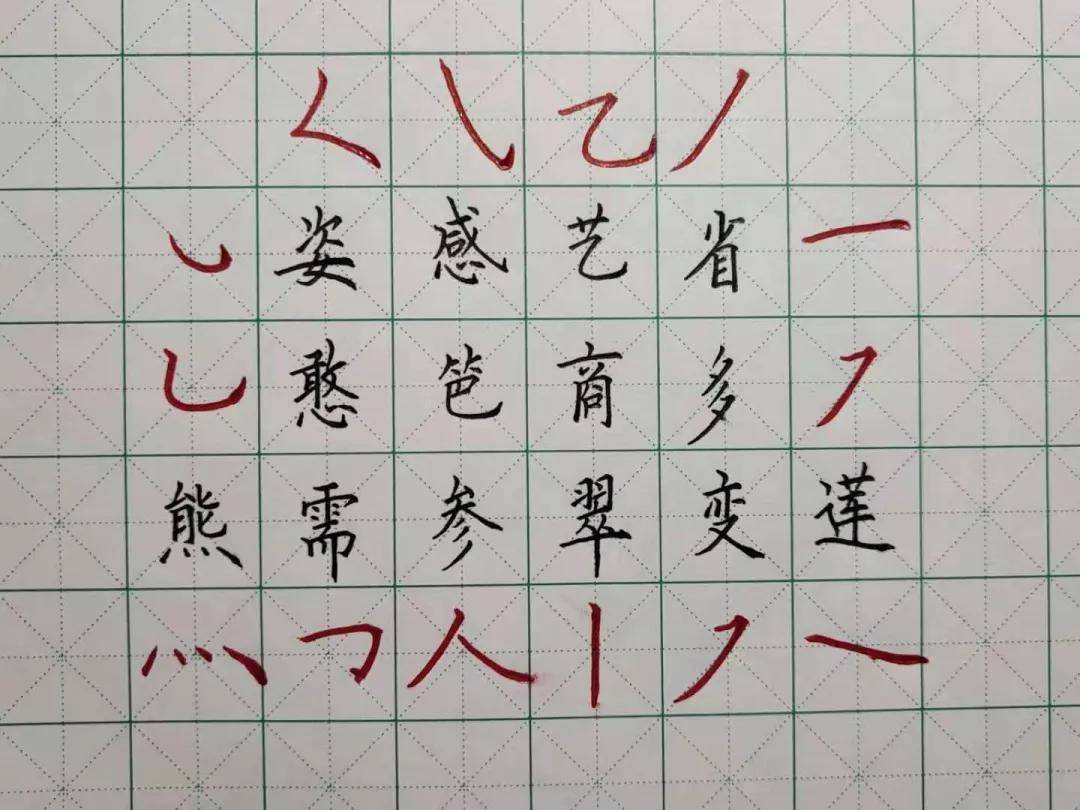 𡿨 ㇂ 乙 丿
姿 感 艺 省 一
乚 憨 笆 商 多
熊 需 参 翠 变 莲
灬 人 丨